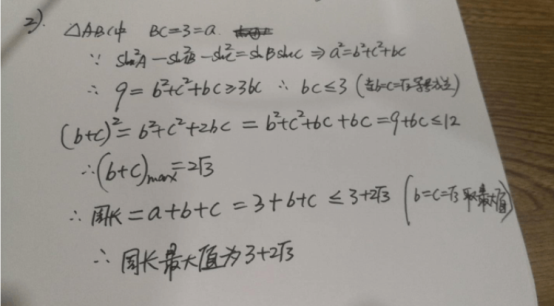 2). △ABC中 BC=3=a.
∵ sin²A-sin²B-sin²C=sinBsinC ⇒ a²=b²+c²+bc
∴ 9=b²+c²+bc≥3bc ∴ bc≤3 (当b=c=√3等号成立)
(b+c)²=b²+c²+2bc=b²+c²+bc+bc=9+bc≤12
∴(b+c)max=2√3
∴ 周长=a+b+c=3+b+c≤3+2√3 (b=c=√3取最大值)
∴ 周长最大值为3+2√3